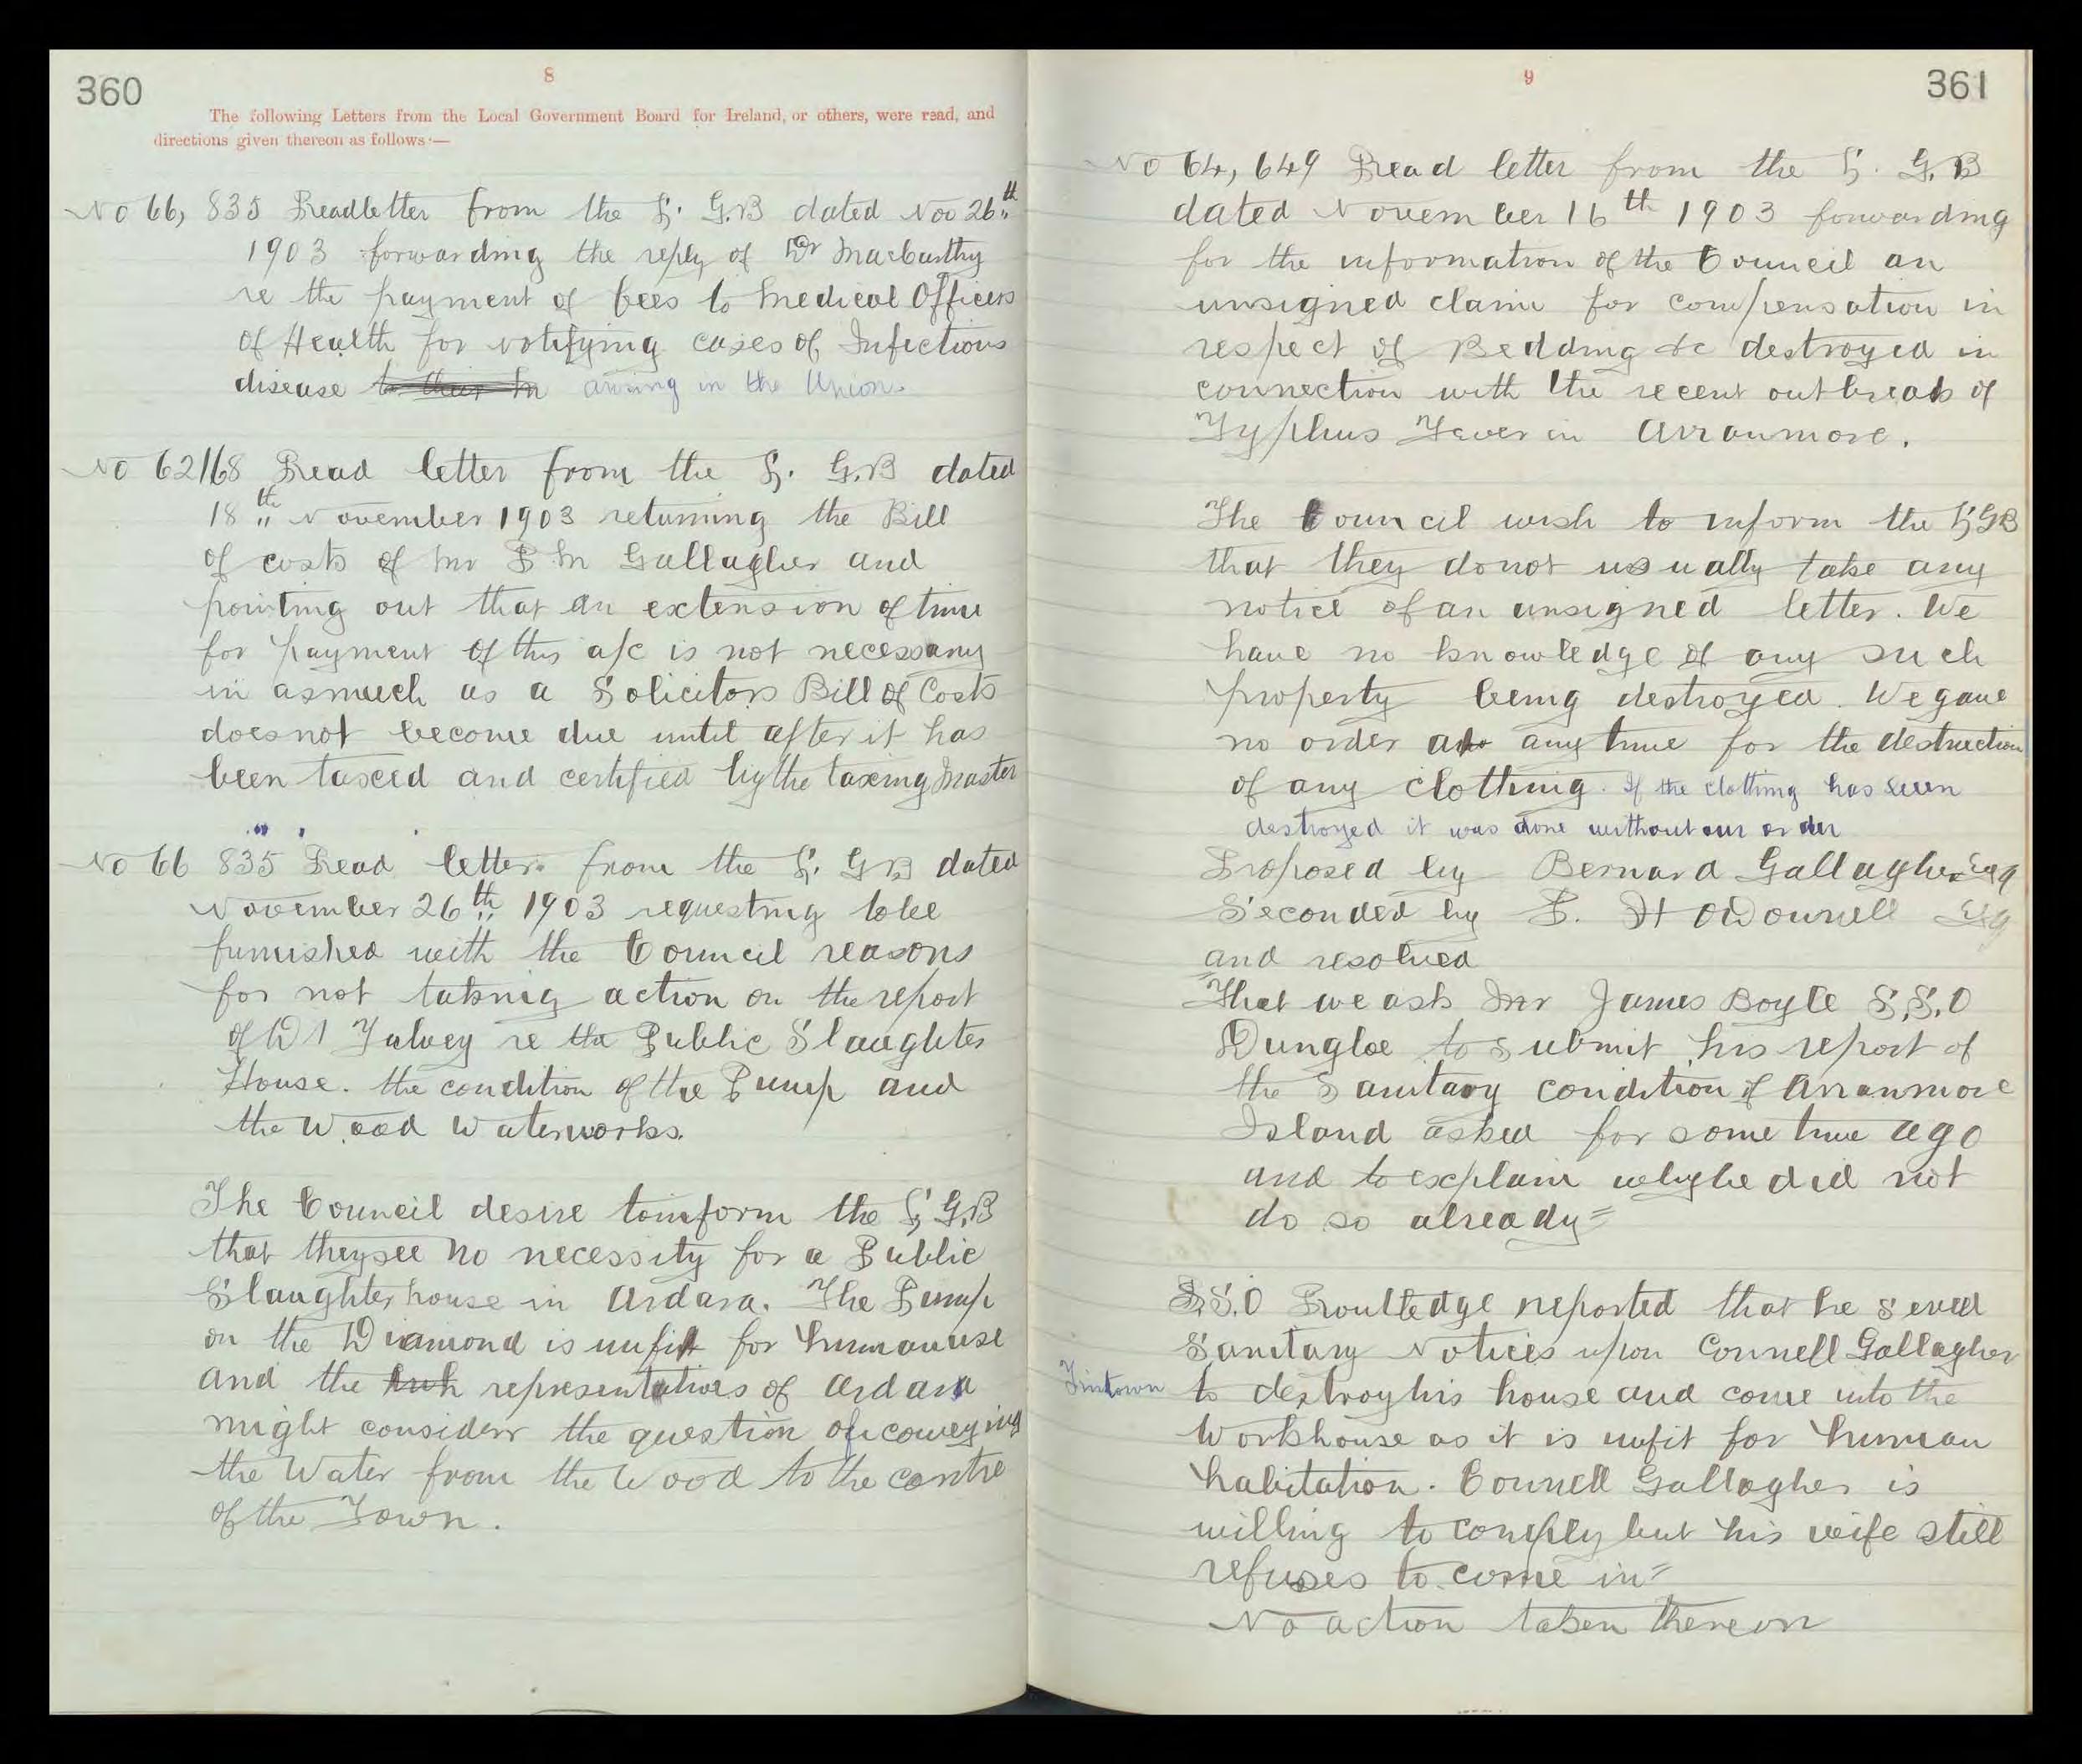 360
8
The following Letters from the Local Government Board for Ireland, or others, were read, and
directions given thereon as follows:—
No 66, 835 Read letter from the L. G.B dated Nov 26th
1903 forwarding the reply of Dr MacCarthy
re the payment of fees to Medical Officers
of Health for notifying cases of Infectious
disease arising in the Union.
No 62168 Read letter from the L. G.B dated
18th November 1903 returning the Bill
of costs of Mr P M Gallagher and
pointing out that an extension of time
for payment of this a/c is not necessary
in asmuch as a Solicitors Bill of Costs
does not become due until after it has
been taxed and certified by the taxing Master
No 66 835 Read letter from the L. G.B dated
November 26th 1903 requesting to be
furnished with the Council reasons
for not taking action on the report
of Dr Falvey re the Public Slaughter
House. the condition of the Pump and
the Wood Waterworks.
The Council desire to inform the L. G.B
that they see no necessity for a Public
Slaughter house in Ardara. The Pump
on the Diamond is unfit for human use
and the representatives of Ardara
might consider the question of conveying
the Water from the Wood to the centre
of the Town.
9
361
No 64, 649 Read letter from the L. G.B
dated November 16th 1903 forwarding
for the information of the Council an
unsigned claim for compensation in
respect of Bedding &c destroyed in
connection with the recent outbreak of
Typhus Fever in Arranmore.
The Council wish to inform the LGB
that they do not usually take any
notice of an unsigned letter. We
have no knowledge of any such
property being destroyed. We gave
no order at any time for the destruction
of any clothing. If the clothing has been
destroyed it was done without our order
Proposed by Bernard Gallagher Esq
Seconded by P. H ODonnell Esq
and resolved
"That we ask Mr James Boyle S.S.O
Dungloe to submit his report of
the Sanitary condition of Arranmore
Island asked for some time ago
and to explain why he did not
do so already"
S.S.O Routledge reported that he served
Sanitary Notices upon Connell Gallagher
Fintown to destroy his house and come into the
Workhouse as it is unfit for human
habitation. Connell Gallagher is
willing to comply but his wife still
refuses to come in"
No action taken thereon